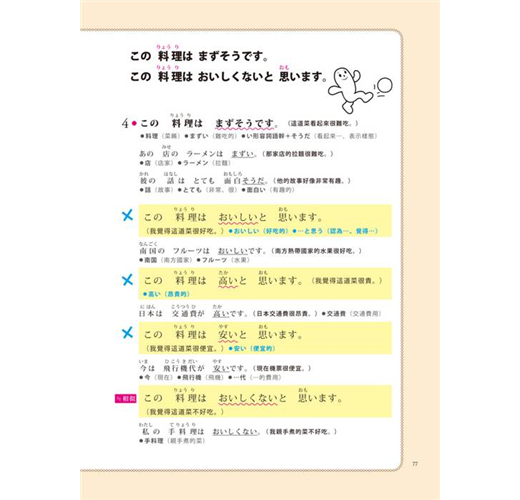 この 料理は まずそうです。
この 料理は おいしくないと 思います。
4●この 料理は まずそうです。（這道菜看起來很難吃。）
●料理（菜餚）●まずい（難吃的）●い形容詞語幹＋そうだ（看起來…、表示樣態）
あの 店の ラーメンは まずい。（那家店的拉麵很難吃。）
●店（店家）●ラーメン（拉麵）
彼の 話は とても 面白そうだ。（他的故事好像非常有趣。）
●話（故事）●とても（非常、很）●面白い（有趣的）
この 料理は おいしいと 思います。
（我覺得這道菜很好吃。）●おいしい（好吃的）●…と思う（認為…、覺得…）
南国の フルーツは おいしいです。（南方熱帶國家的水果很好吃。）
●南国（南方國家）●フルーツ（水果）
この 料理は 高いと 思います。（我覺得這道菜很貴。）
●高い（昂貴的）
日本は 交通費が 高いです。（日本交通費很昂貴。）●交通費（交通費用）
この 料理は 安いと 思います。
（我覺得這道菜很便宜。）●安い（便宜的）
今は 飛行機代が 安いです。（現在機票很便宜。）
●今（現在）●飛行機（飛機）●…代（…的費用）
相似
この 料理は おいしくないと 思います。
（我覺得這道菜不好吃。）
私の 手料理は おいしくない。（我親手煮的菜不好吃。）
●手料理（親手煮的菜）
77